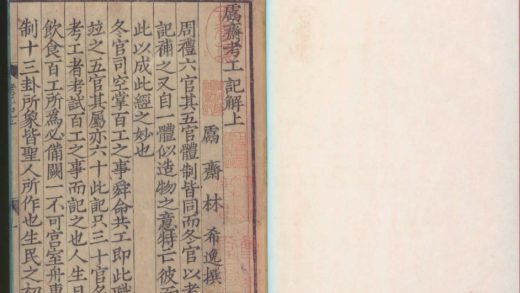 鬳齋考工記解上
鬳齋林希逸撰
周禮六官其五官體制皆同而冬官以考
記補之又自一體似造物之意特亡彼而
此以成此經之妙也
冬官司空掌百工之事舜命共工即此職
竝之五官其屬亦六十此記只三十官名
考工者考試百工之事而記之也人生日
飲食百工所為必備闕一不可宮室舟車
制十三卦所象皆聖人所作也生民之初